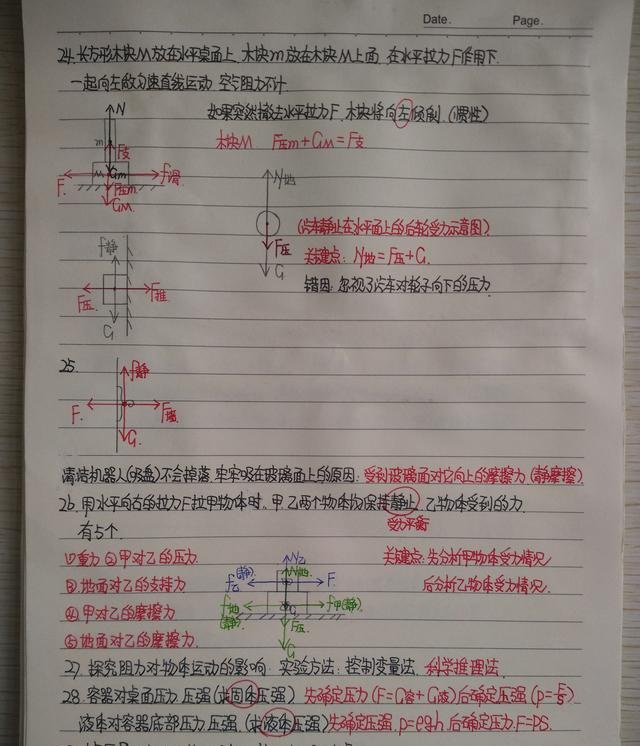 Date. Page.
24. 长方形木块M放在水平桌面上, 木块m放在木块M上面, 在水平拉力F作用下
一起向左做匀速直线运动, 空气阻力不计
如果突然撤去水平拉力F, 木块将向左倾倒. (惯性)
N
木块M F压m+GM=F支
m F支
M Gm
F. f滑
F压m
GM
N地
(汽车静止在水平面上的后轮受力示意图)
F压
关键点: N地=F压+G.
G
错因: 忽视了汽车对轮子向下的压力
f静
F压 F推
G
25.
f静
F.
G.
清洁机器人(吸盘)不会掉落, 牢牢吸在玻璃面上的原因: 受到玻璃面对它向上的摩擦力(静摩擦)
26. 用水平向右的拉力F拉甲物体时, 甲、乙两个物体均保持静止. 乙物体受到的力
受力平衡
有5个.
①重力 ②甲对乙的压力. 关键点: 先分析甲物体受力情况
③地面对乙的支持力 后分析乙物体受力情况.
④甲对乙的摩擦力
⑤地面对乙的摩擦力.
N乙
N地
f乙(静) F.
f地(静) G f甲(静)
F压
G
27. 探究阻力对物体运动的影响. 实验方法: 控制变量法, 科学推理法
28. 容器对桌面压力、压强 (求固体压强) 先确定压力 (F=G容+G液) 后确定压强 (p=F/S)
液体对容器底部压力、压强. (求液体压强) 先确定压强. p=ρgh 后确定压力. F=PS.